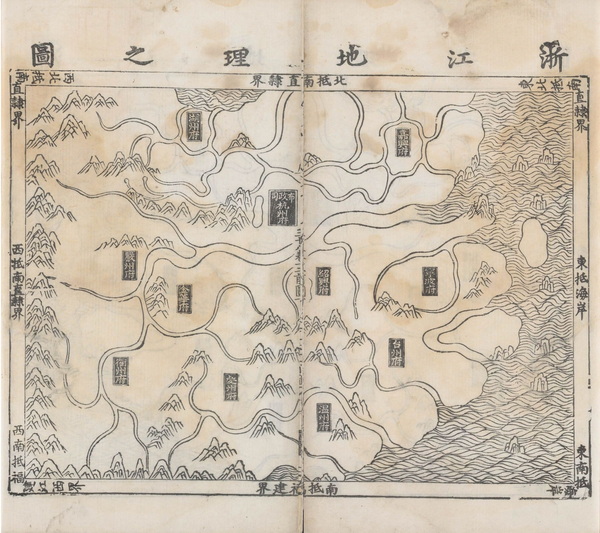 浙江地理之圖
東北抵南直隸界
北抵南直隸界
西北抵南直隸界
嘉興府
湖州府
布政司
杭州府
東抵海岸
寧波府
紹興府
金華府
嚴州府
西抵南直隸界
台州府
溫州府
處州府
衢州府
東南抵
南抵福建界
西南抵福
建江西界